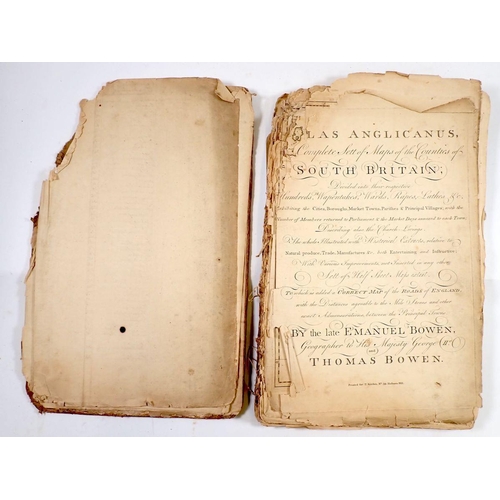 LAS ANGLICANUS,
Complete Sett of Maps of the Counties of
SOUTH BRITAIN;
Divided into their respective
Hundreds, Wapentakes, Wards, Rapes, Lathes, &c.
exhibiting the Cities, Boroughs, Market Towns, Parishes & Principal Villages; with the
Number of Members returned to Parliament & the Market Days annexed to each Town.
Describing also the Church Livings
The whole Illustrated with Historical Extracts relative to
Natural produce, Trade, Manufactures &c. both Entertaining and Instructive;
With Various Improvements, not Inserted in any other
Sett of Half Sheet Maps extant.
To which is added a CORRECT MAP of the ROADS of ENGLAND
with the Distances agreeable to the Mile Stones and other
exact Admeasurations between the Principal Towns
BY the late EMANUEL BOWEN,
Geographer to His Majesty George II^d.
AND
THOMAS BOWEN.